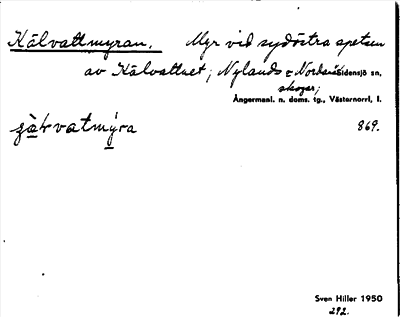 Kälvattmyran. Myr vid sydöstra spetsen
av Kälvattnet; Nylands o Nordanås Sidensjö sn,
skogar;
Ångermanl. n. doms. tg., Västernorrl, l.
869.
Sven Hiller 1950
292.